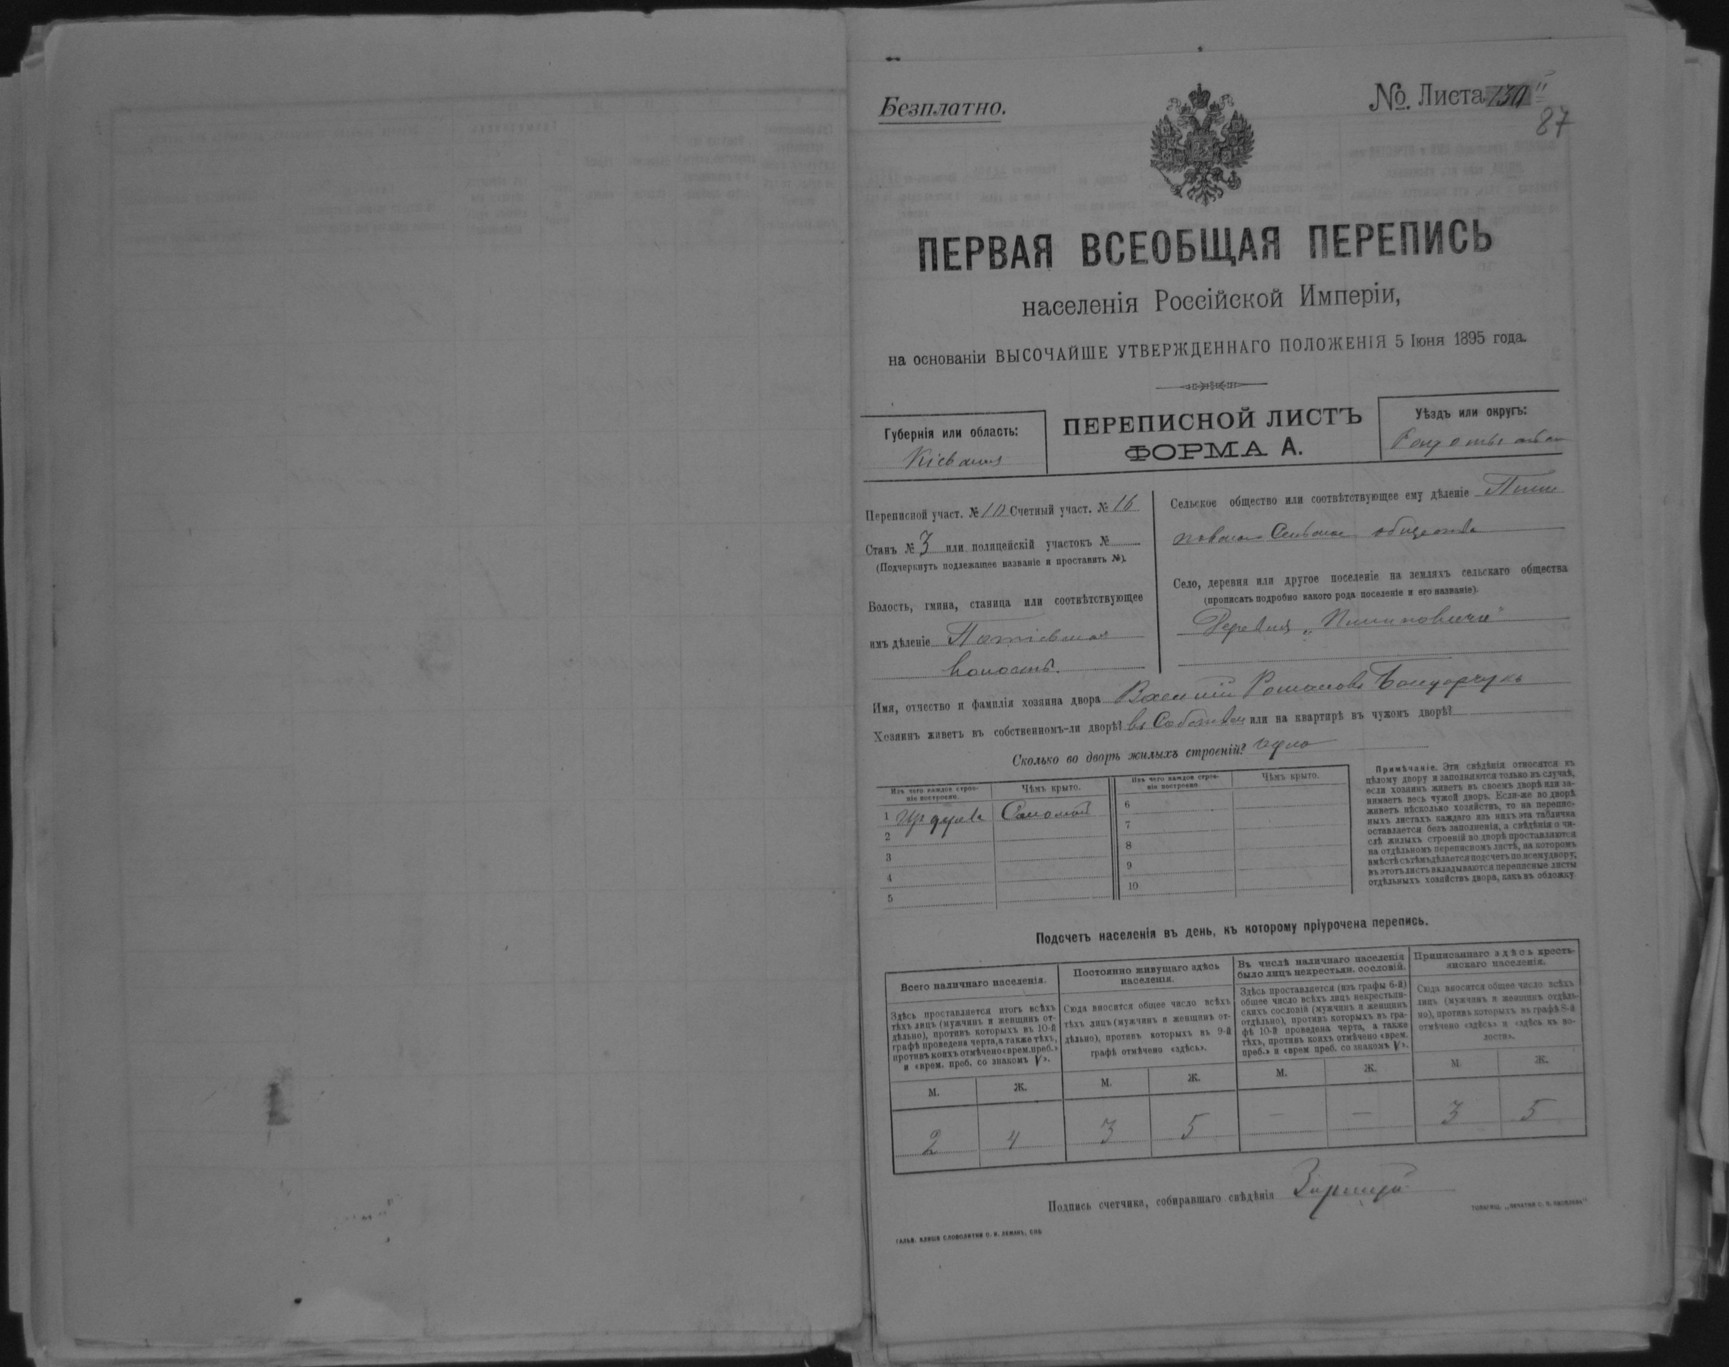 Безплатно.
№. Листа
87
ПЕРВАЯ ВСЕОБЩАЯ ПЕРЕПИСЬ
населенія Россійской Имперіи,
на основаніи ВЫСОЧАЙШЕ УТВЕРЖДЕННАГО ПОЛОЖЕНІЯ 5 Іюня 1895 года.
Губернія или область:
Кіевская
ПЕРЕПИСНОЙ ЛИСТЪ
ФОРМА А.
Уѣздъ или округъ:
Переписной участ. № 10 Счетный участ. № 16
Станъ № 3 или полицейскій участокъ №
(Подчеркнуть подлежащее названіе и проставить №).
Волость, гмина, станица или соотвѣтствующее
имъ дѣленіе
волость.
Сельское общество или соотвѣтствующее ему дѣленіе
Сельское общество
Село, деревня или другое поселеніе на земляхъ сельскаго общества
(прописать подробно какого рода поселеніе и его названіе).
Деревня
Имя, отчество и фамилія хозяина двора Василій Романовъ Бондарчукъ
Хозяинъ живетъ въ собственномъ-ли дворѣ? или на квартирѣ въ чужомъ дворѣ?
Сколько во дворѣ жилыхъ строеній? одно
Изъ чего каждое строе-
ніе построено.
Чѣмъ крыто.
1 Соломой
2
3
4
5
Изъ чего каждое строе-
ніе построено.
Чѣмъ крыто.
6
7
8
9
10
Примѣчаніе. Эти свѣдѣнія относятся къ
цѣлому двору и заполняются только въ случаѣ,
если хозяинъ живетъ въ своемъ дворѣ или за-
нимаетъ весь чужой дворъ. Если-же во дворѣ
живетъ нѣсколько хозяйствъ, то на перепис-
ныхъ листахъ каждаго изъ нихъ эта табличка
оставляется безъ заполненія, а свѣдѣнія о чи-
слѣ жилыхъ строеній во дворѣ проставляются
на отдѣльномъ переписномъ листѣ, на которомъ
вмѣстѣ съ тѣмъ дѣлается подсчетъ по всему двору;
въ этотъ листъ вкладываются переписные листы
отдѣльныхъ хозяйствъ двора, какъ въ обложку.
Подсчетъ населенія въ день, къ которому пріурочена перепись.
Всего наличнаго населенія.
Здѣсь проставляется итогъ всѣхъ
тѣхъ лицъ (мужчинъ и женщинъ от-
дѣльно), противъ которыхъ въ 10-й
графѣ проведена черта, а также тѣхъ,
противъ коихъ отмѣчено «врем. преб.»
и «врем. преб. со знакомъ V».
М. Ж.
2 4
Постоянно живущаго здѣсь
населенія.
Сюда вносится общее число всѣхъ
тѣхъ лицъ (мужчинъ и женщинъ от-
дѣльно), противъ которыхъ въ 9-й
графѣ отмѣчено «здѣсь».
М. Ж.
3 5
Въ числѣ наличнаго населенія
было лицъ некрестьян. сословій.
Здѣсь проставляется (изъ графы 6-й)
общее число всѣхъ лицъ некрестьян-
скихъ сословій (мужчинъ и женщинъ
отдѣльно), противъ которыхъ въ гра-
фѣ 10-й проведена черта, а также
тѣхъ, противъ коихъ отмѣчено «врем.
преб.» и «врем. преб. со знакомъ V».
М. Ж.
— —
Приписаннаго здѣсь кресть-
янскаго населенія.
Сюда вносится общее число всѣхъ
лицъ (мужчинъ и женщинъ отдѣль-
но), противъ которыхъ въ графѣ 8-й
отмѣчено «здѣсь» и «здѣсь въ во-
лости».
М. Ж.
3 5
Подпись счетчика, собиравшаго свѣдѣнія